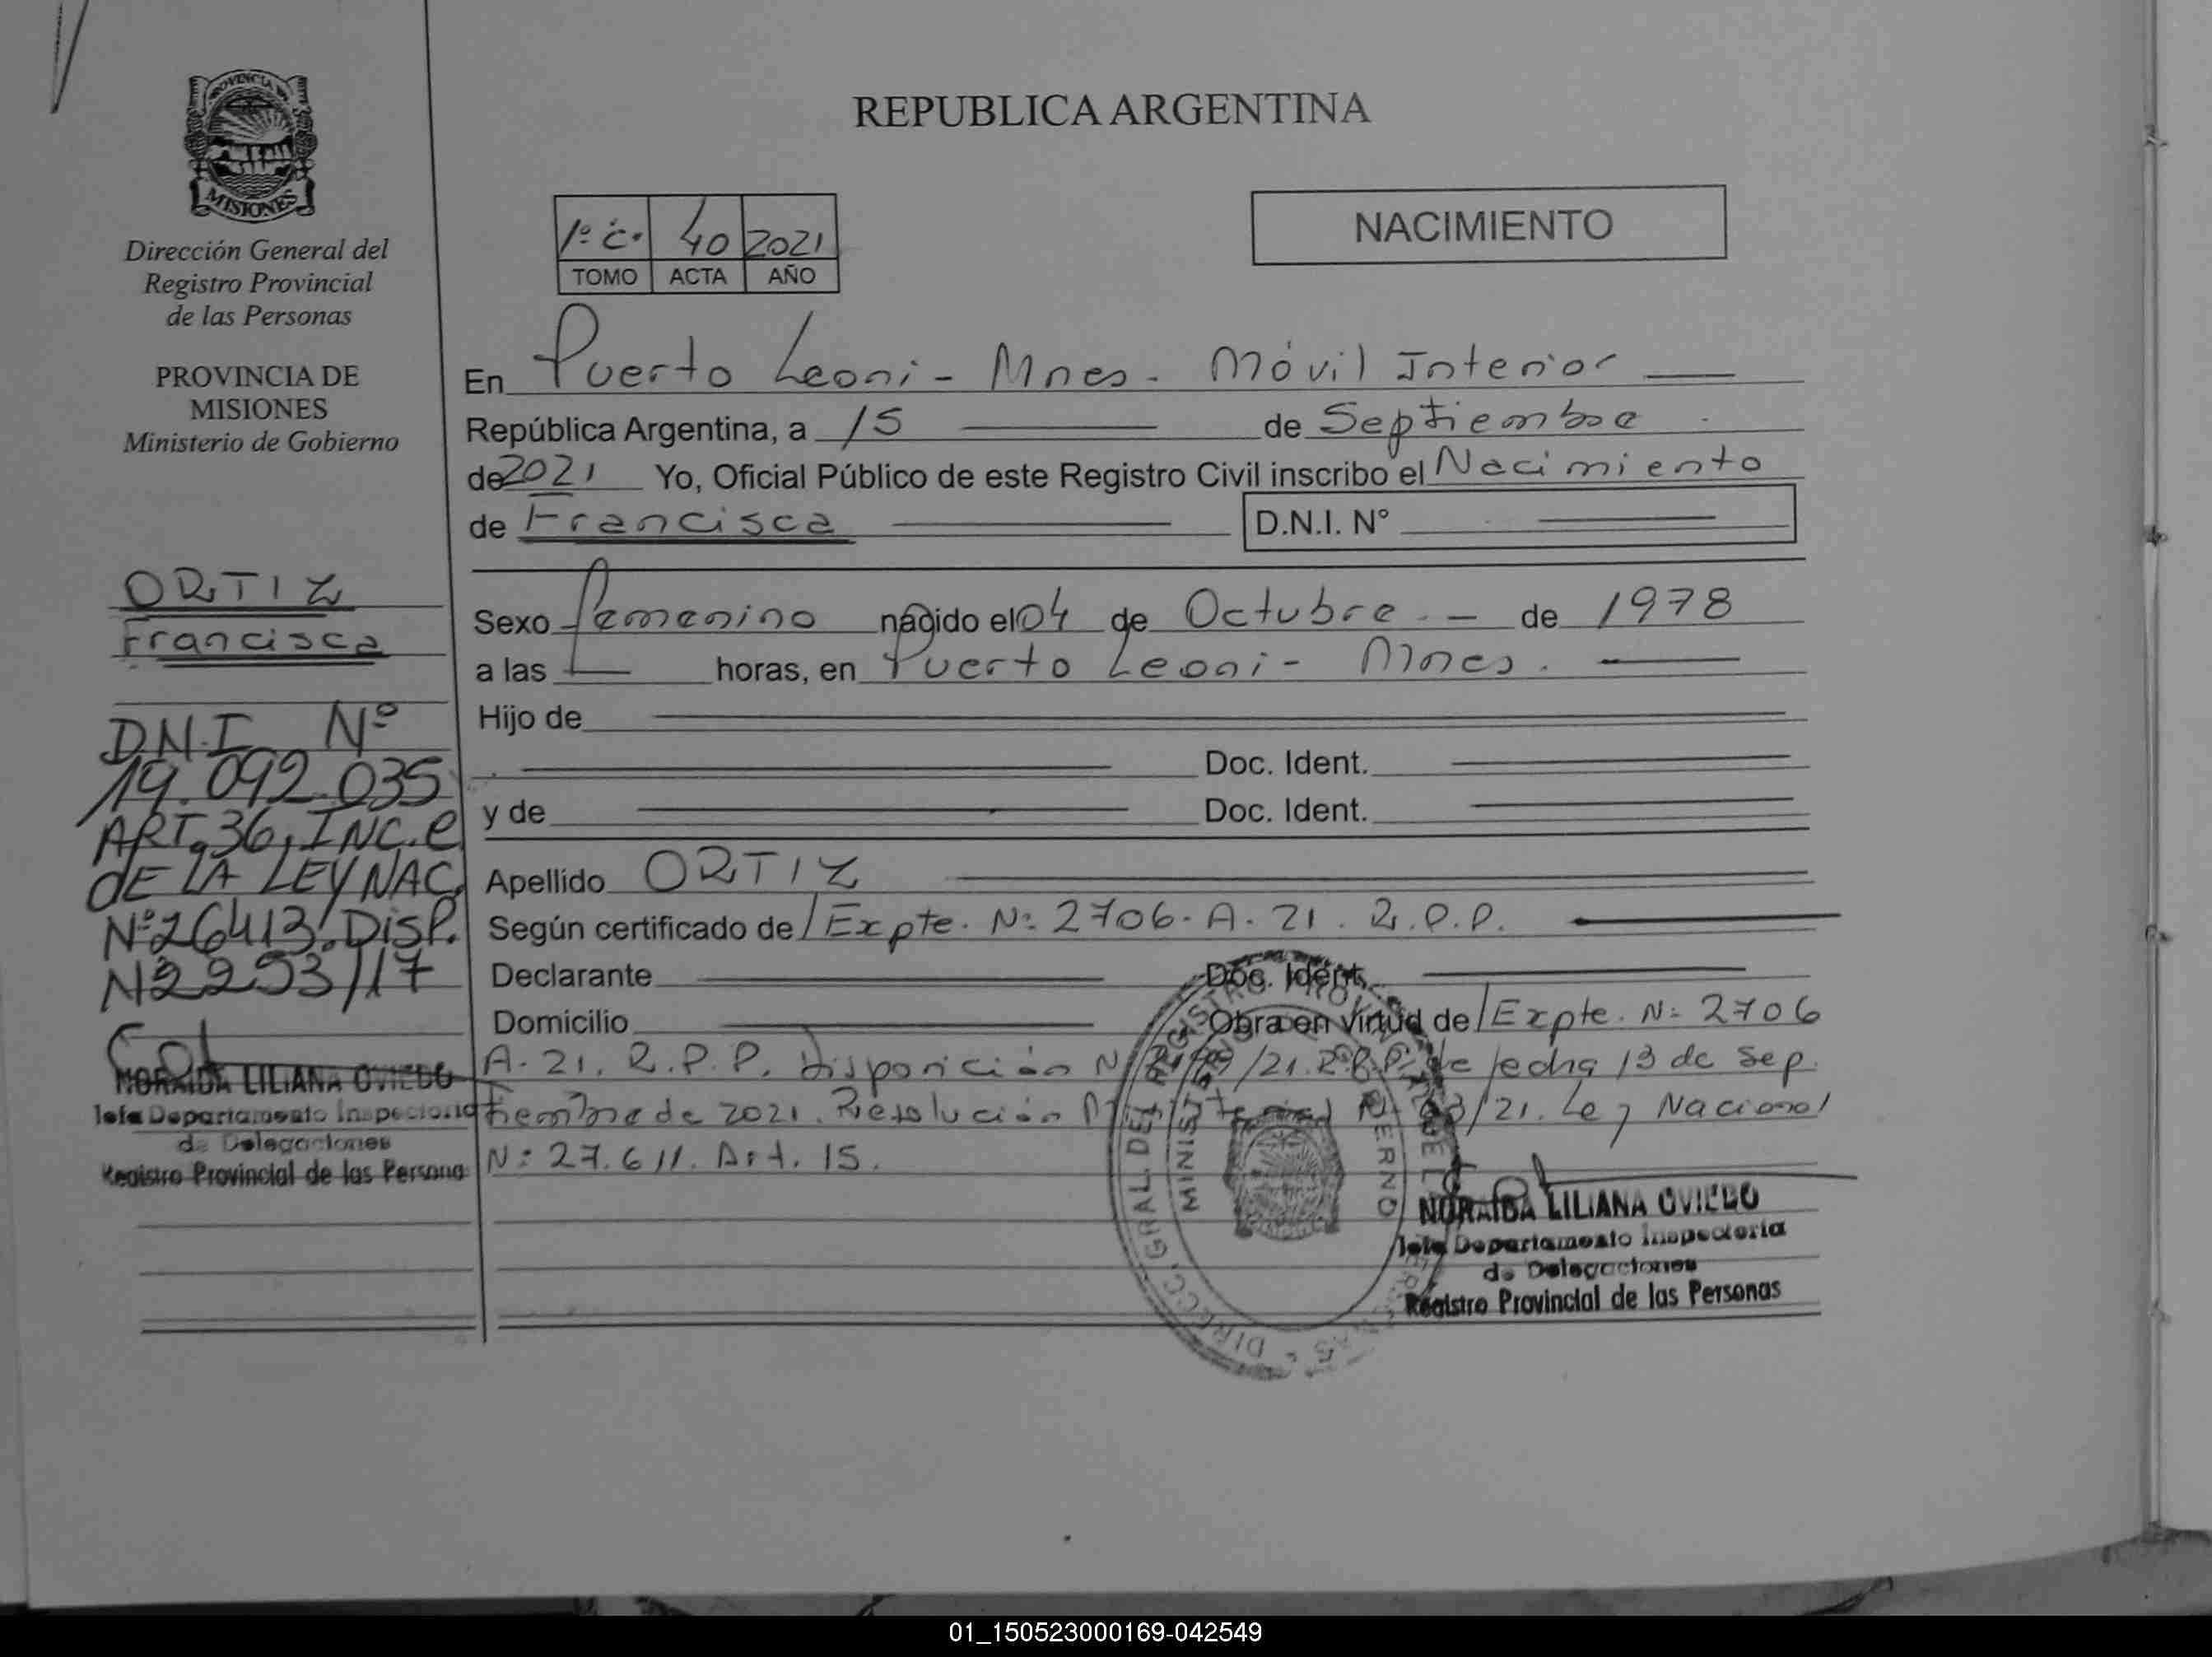 PROVINCIA DE
MISIONES
Dirección General del
Registro Provincial
de las Personas
PROVINCIA DE
MISIONES
Ministerio de Gobierno
ORTIZ
Francisca
D.N.I Nº
19.092.035
ART. 36, INC. e
DE LA LEY NAC.
Nº 26413. DISP.
Nº 2293/17
NORAIDA LILIANA OVIEDO
Jefe Departamento Inspectoria
de Delegaciones
Registro Provincial de las Persona
REPUBLICA ARGENTINA
1º C. 40 2021
TOMO ACTA AÑO
NACIMIENTO
En Puerto Leoni - Mnes - Móvil Interior
República Argentina, a 15 de Septiembre
de 2021 Yo, Oficial Público de este Registro Civil inscribo el Nacimiento
de Francisca D.N.I. N°
Sexo femenino nacido el 04 de Octubre de 1978
a las horas, en Puerto Leoni - Mnes.
Hijo de
Doc. Ident.
y de Doc. Ident.
Apellido ORTIZ
Según certificado de Expte. Nº 2706. A. 21. R.P.P.
Declarante Doc. Ident.
Domicilio Obra en virtud de Expte. Nº 2706
A. 21. R.P.P. Disposición /21. R.P.P. de fecha 13 de Sep.
tiembre de 2021. Resolución /21. Ley Nacional
Nº 27.611. Art. 15.
DIRECC. GRAL. DEL REGISTRO PROVINCIAL DE LAS PERSONAS
MINISTERIO DE GOBIERNO
NORAIDA LILIANA OVIEDO
Jefe Departamento Inspectoria
de Delegaciones
Registro Provincial de las Personas
01_150523000169-042549